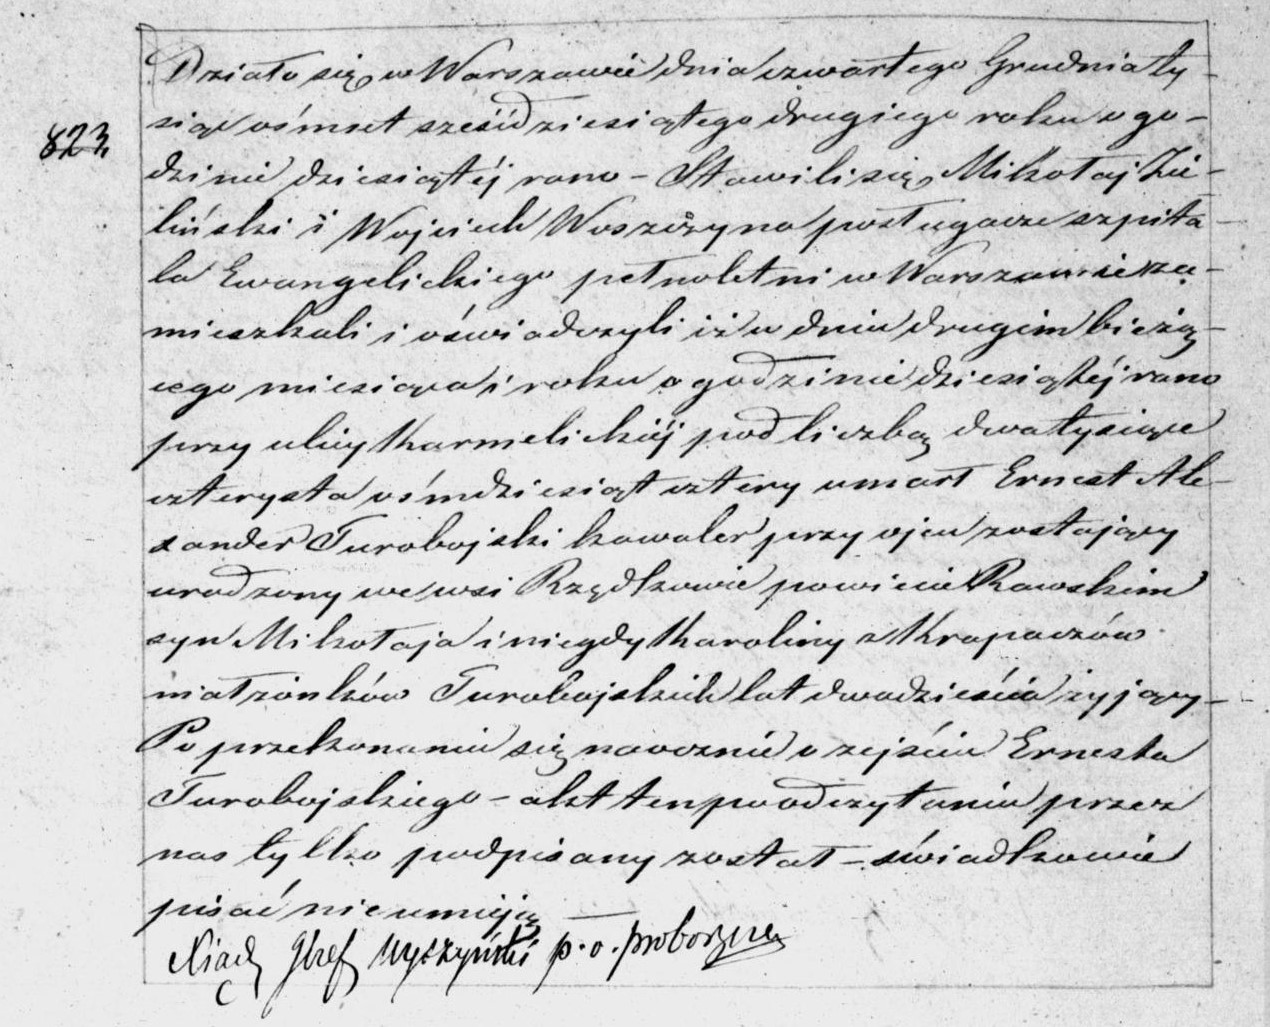 823.
Działo się w Warszawie dnia czwartego Grudnia ty-
siąc ośmset sześćdziesiątego drugiego roku o go-
dzinie dziesiątéj rano – Stawili się Mikołaj Zie-
liński i Wojciech Woszczyna posługacze szpita-
la Ewangelickiego pełnoletni w Warszawie za-
mieszkali i oświadczyli iż w dniu drugim bieżą-
cego miesiąca i roku o godzinie dziesiątéj rano
przy ulicy Karmelickiéj pod liczbą dwa tysiące
czterysta ośmdziesiąt cztery umarł Ernest Ale-
xander Turobojski kawaler przy ojcu zostający
urodzony we wsi Rzędkowie powiecie Rawskim
syn Mikołaja i niegdy Karoliny z Krapaczów
małżonków Turobojskich lat dwadzieścia żyjący –
Po przekonaniu się naocznie o zejściu Ernesta
Turobojskiego – akt ten po odczytaniu przez
nas tylko podpisany został – świadkowie
pisać nie umieją
Xiądz Józef Wyszyński p. o. proboszcza